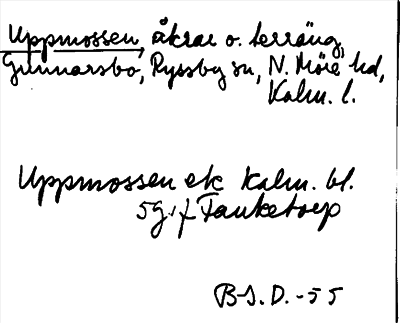 Uppmossen, åkrar o. terräng,
Gunnarsbo, Ryssby sn, N. Möre hd,
Kalm. l.
Uppmossen ek Kalm. bl.
5g, f Tanketorp
B-S. D. -55